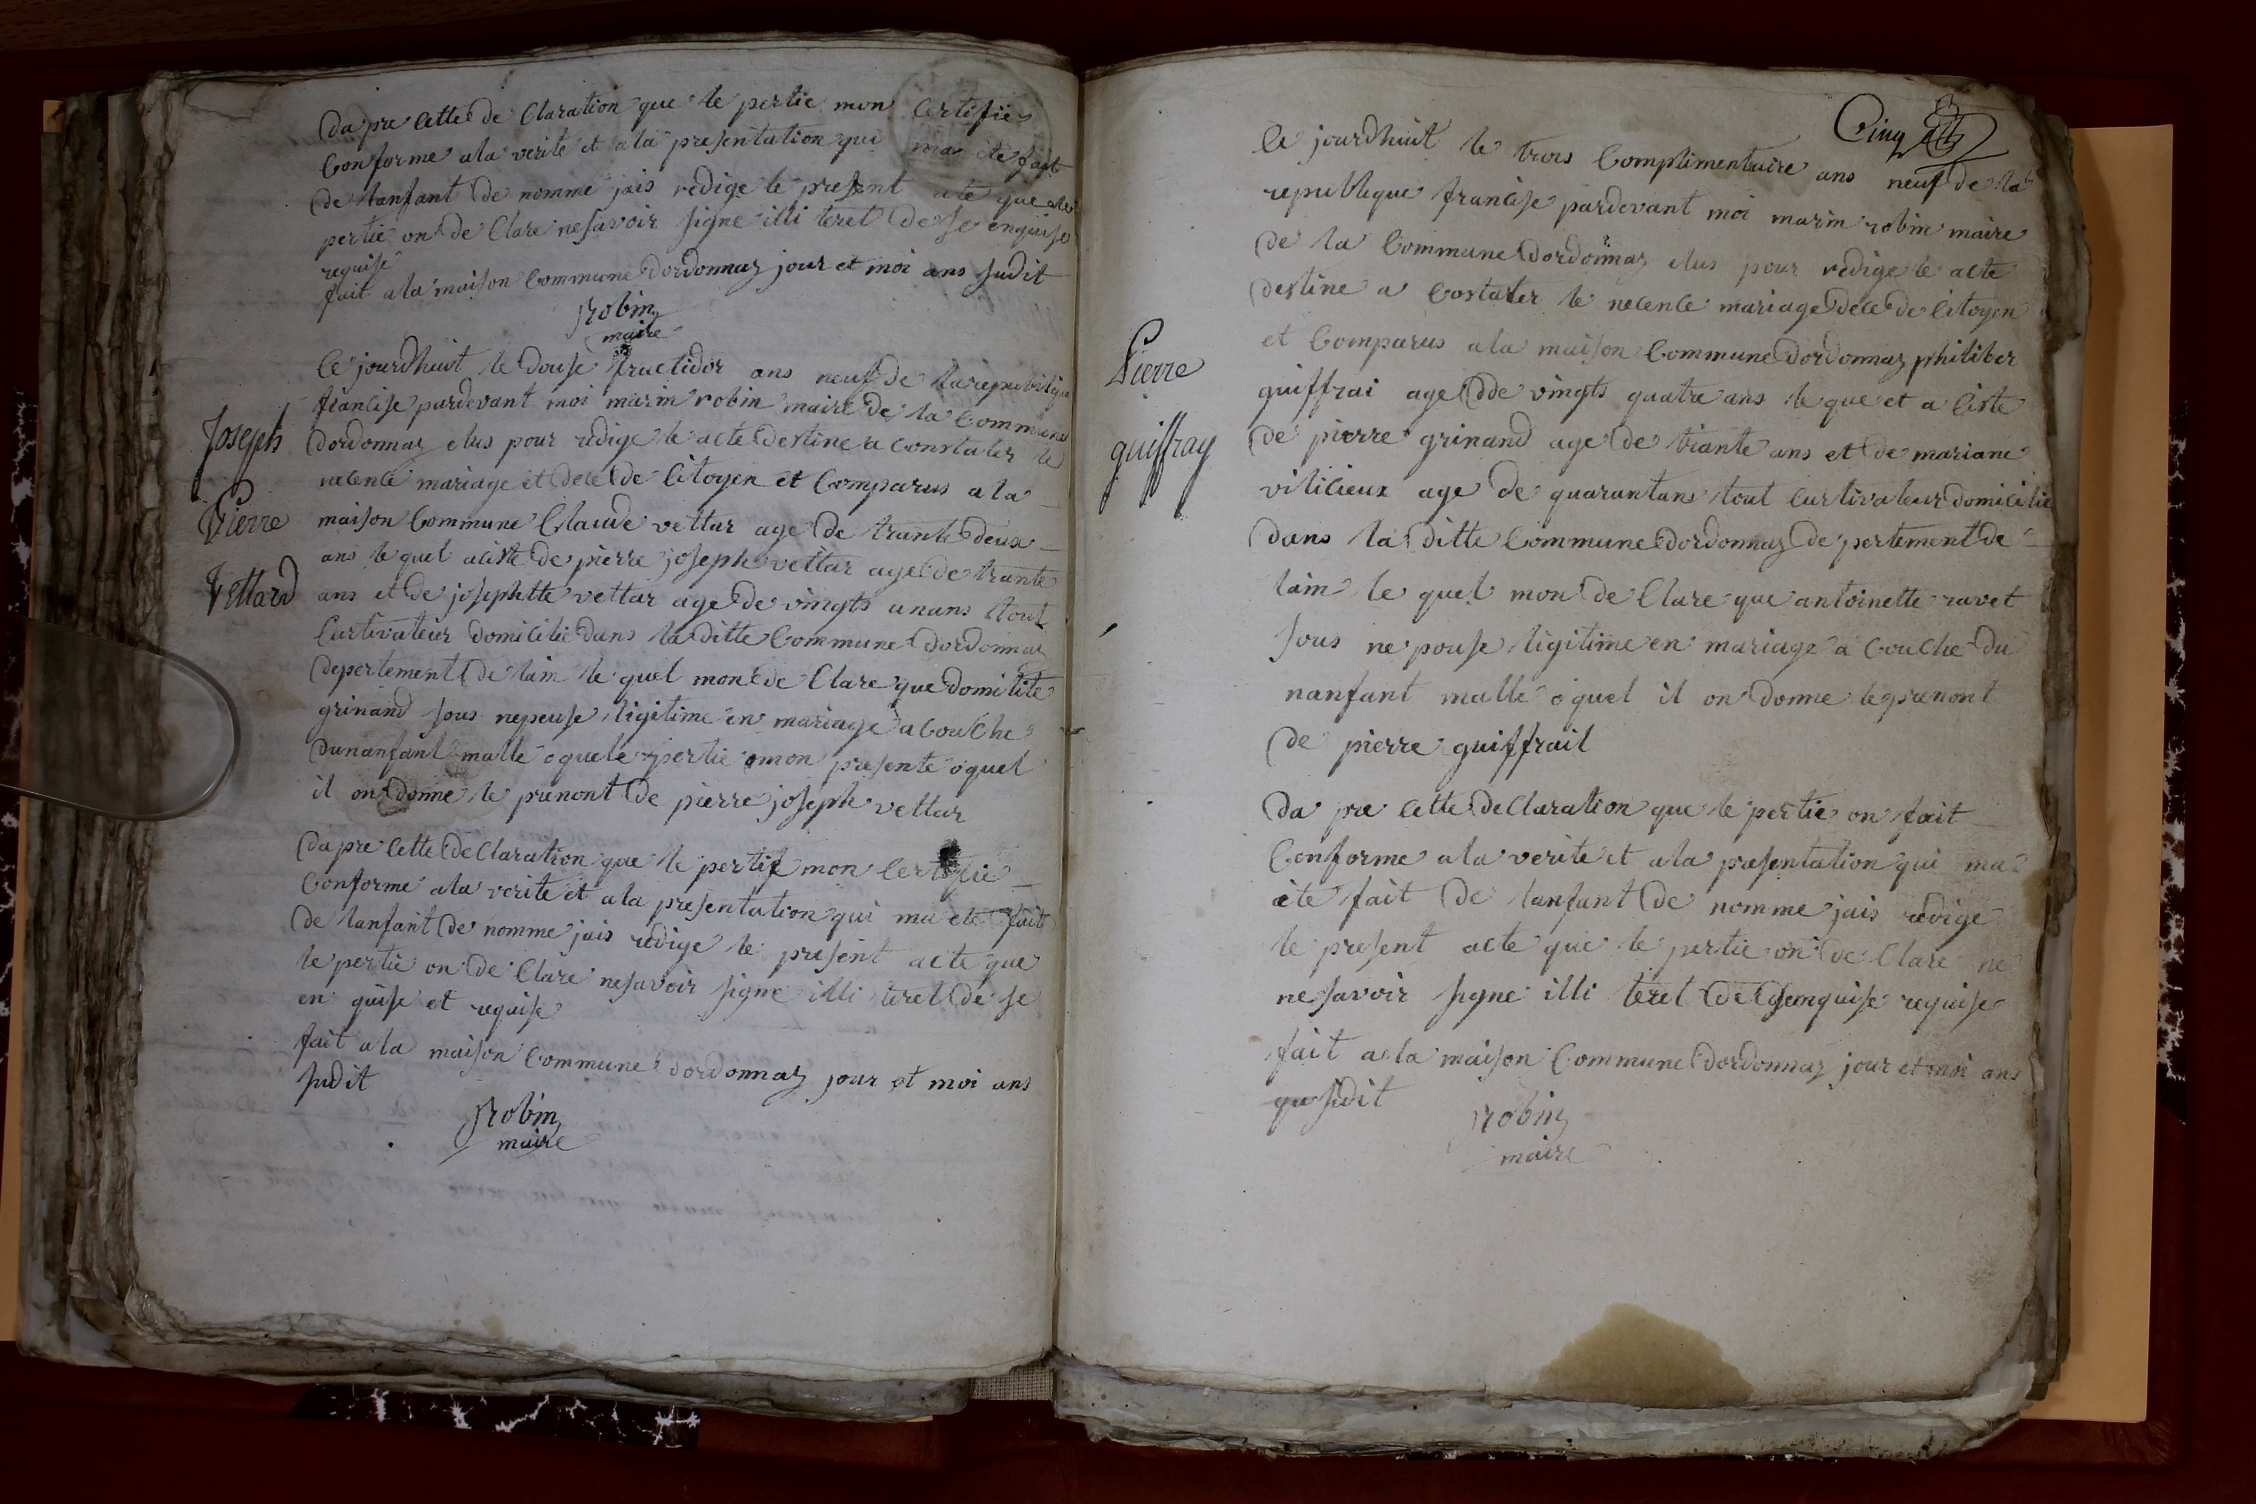 dapre cette de Claration que le pertie mon Certifié
Conforme ala verité et ala presentation qui ma ete fait
de lanfant de nomme jais redige le present ate que le
pertie on de Clare nesavoir signe illi teret de se enquise
requise
fait ala maison Commune dordonnaz jour et moi ans sudit
Robin
maire
Ce jourdhuit le douse fructidor ans neuf de la republique
francise pardevant moi marin robin maire de la Commune
Joseph
dordonnaz elus pour redige le acte destine a Constater le
necence mariage et dece de Citoyen et Comparus ala
Pierre
maison Commune Claude vettar age de trante deux
ans le quel aciste de pierre joseph vettar age de trante
Vettard
ans et de josephtte vettar age de vingts unans tout
Curtivateur domicilie dans la ditte Commune dordonnaz
depertement de lain le quel mon de Clare que domitite
grinand sous nepeuse ligitime en mariage a Couche
dunanfant malle o quele pertie omon presente o quel
il on donne le prenont de pierre joseph vettar
dapre Cette de Claration que le pertie mon Certifie
Conforme ala verite et ala presentation qui ma ete fait
de lanfant de nomme jais redige le present acte que
le pertie on de Clare nesavoir signe illi teret de se
en quise et requise
fait ala maison Commune dordonnaz jour et moi ans
sudit
Robin
maire
Cinq
Ce jourdhuit le trois Complimentaire ans neuf de la
republique francise pardevant moi marin robin maire
de la Commune dordonnaz elus pour redige le acte
destine a Costater le necence mariage dece de Citoyen
et Comparus ala maison Commune dordonnaz philiber
Pierre
guiffrai age dde vingts quatre ans le que et a ciste
guiffray
de pierre grinand age de triante ans et de mariane
vilicieux age de quarantans tout Curtivateur domicilie
dans la ditte Commune dordonnaz de pertement de
lain le quel mon de Clare que antoinette ravet
sous ne pouse ligitime en mariage a Couche du
nanfant malle o quel il on donne le prenont
de pierre guiffrail
da pre cette de Claration que le pertie on fait
Conforme ala verite et ala presentation qui ma
ete fait de lanfant de nomme jais redige
le present acte que le pertie on de Clare ne
nesavoir signe illi teret de senquise requise
fait a la maison Commune dordonnaz jour et moi ans
que sudit
Robin
maire